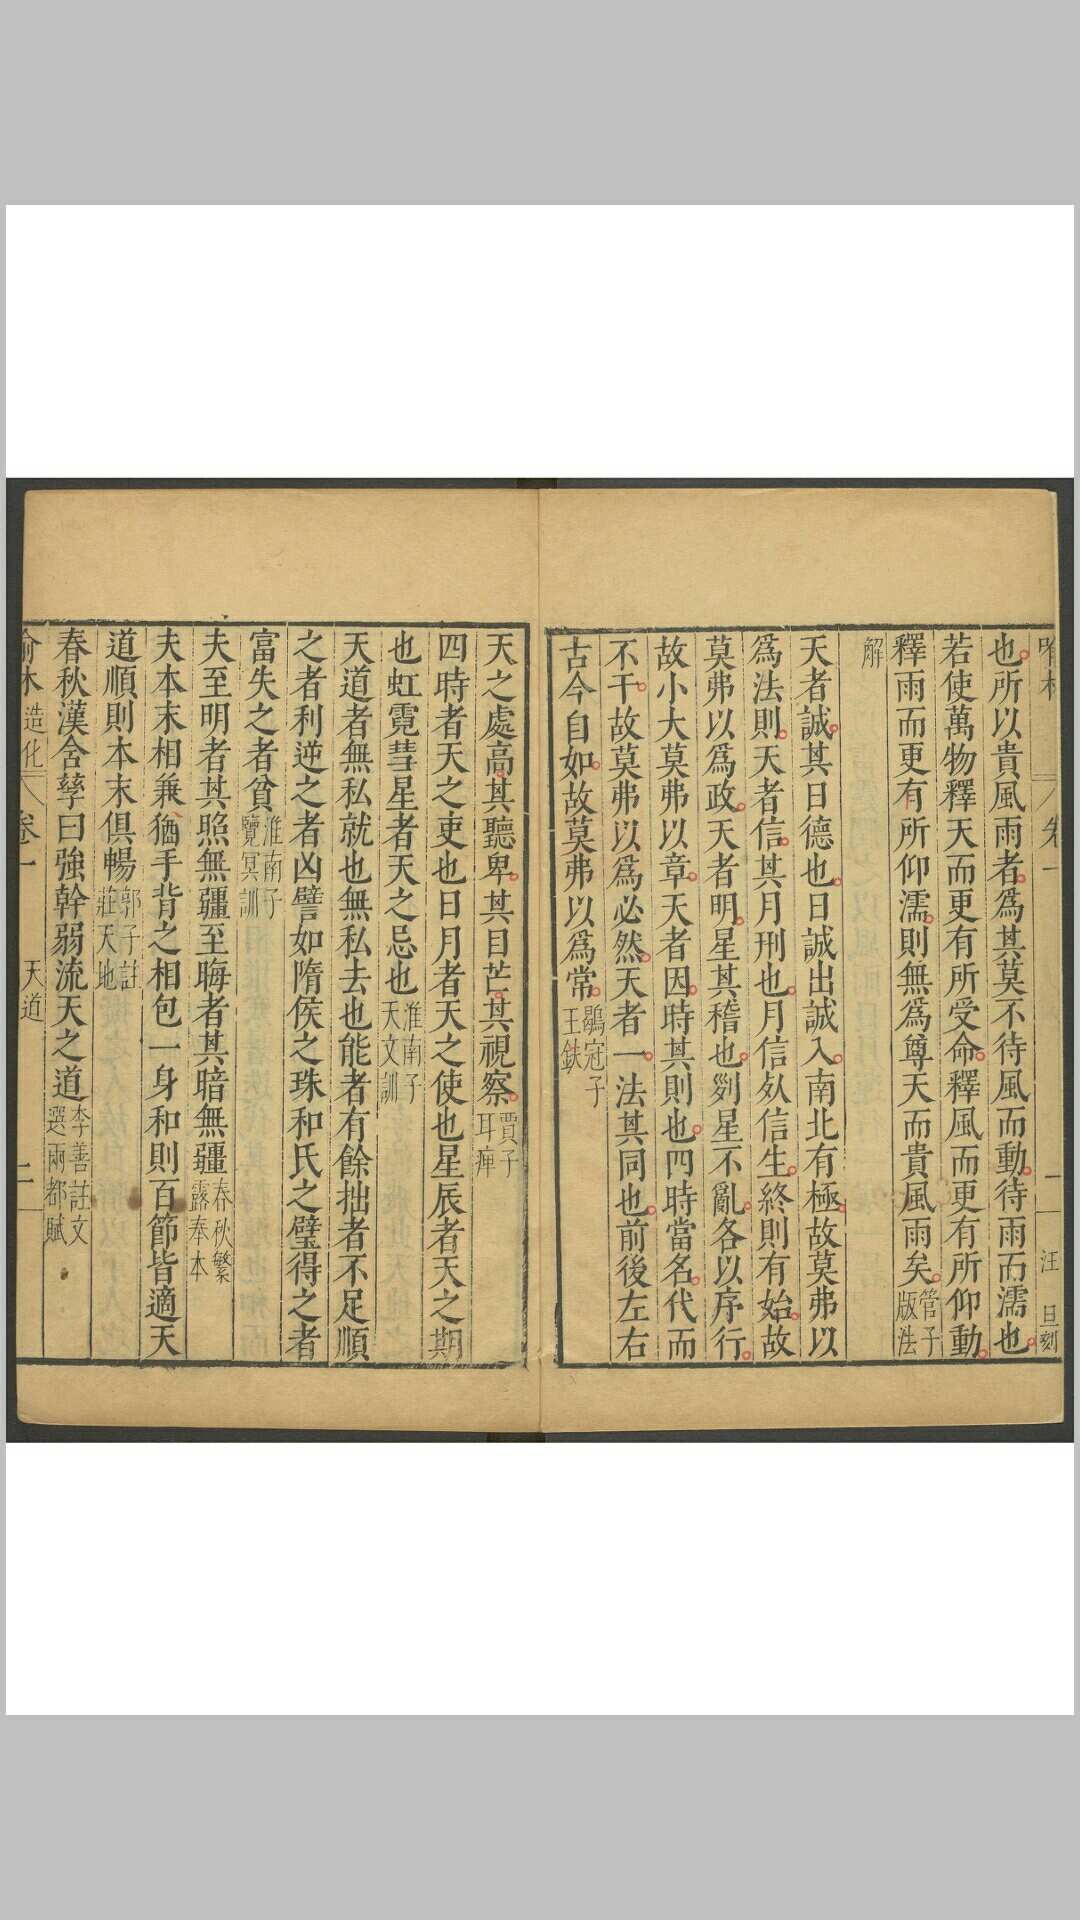 喻林 卷一 一 汪旦刻
也所以貴風雨者爲其莫不待風而動待雨而濡也
若使萬物釋天而更有所受命釋風而更有所仰動
釋雨而更有所仰濡則無爲尊天而貴風雨矣管子版法
解
天者誠其日德也日誠出誠入南北有極故莫弗以
爲法則天者信其月刑也月信死信生終則有始故
莫弗以爲政天者明星其稽也列星不亂各以序行
故小大莫弗以章天者因時其則也四時當名代而
不干故莫弗以爲必然天者一法其同也前後左右
古今自如故莫弗以爲常鶡冠子王鈇
天之處高其聽卑其目芒其視察賈子耳痺
四時者天之吏也日月者天之使也星辰者天之期
也虹霓彗星者天之忌也淮南子天文訓
天道者無私就也無私去也能者有餘拙者不足順
之者利逆之者凶譬如隋侯之珠和氏之璧得之者
富失之者貧淮南子覽冥訓
夫至明者其照無疆至晦者其暗無疆春秋繁露奉本
夫本末相兼猶手背之相包一身和則百節皆適天
道順則本末俱暢郭子註莊天地
春秋漢含孳曰強幹弱流天之道李善註文選兩都賦
喻林 造化 卷一 天道 二